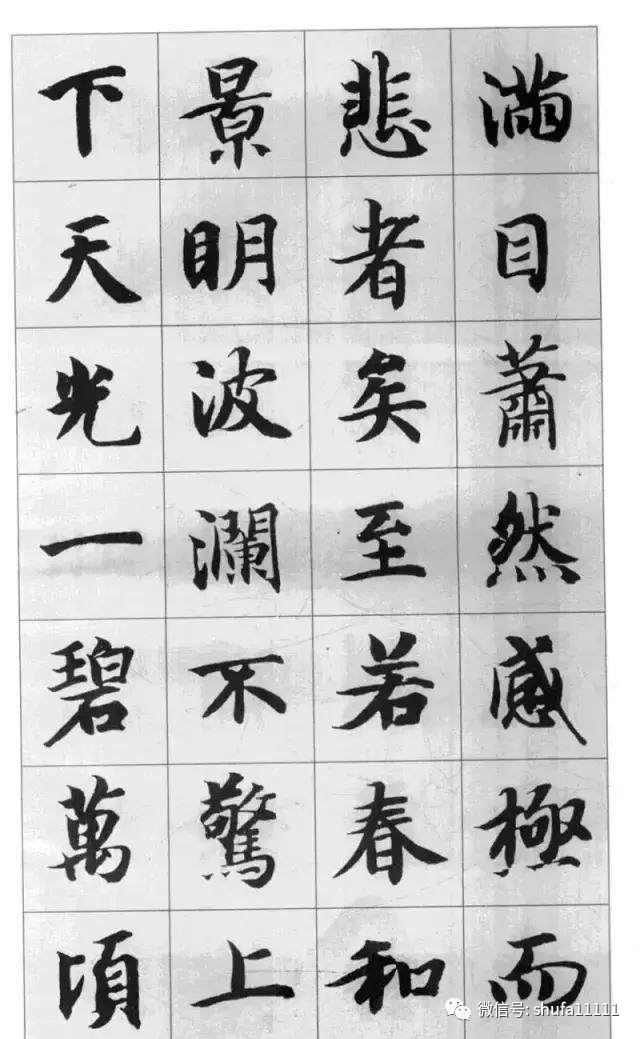 滿目蕭然感極而
悲者矣至若春和
景明波瀾不驚上
下天光一碧萬頃
微信号: shufa11111